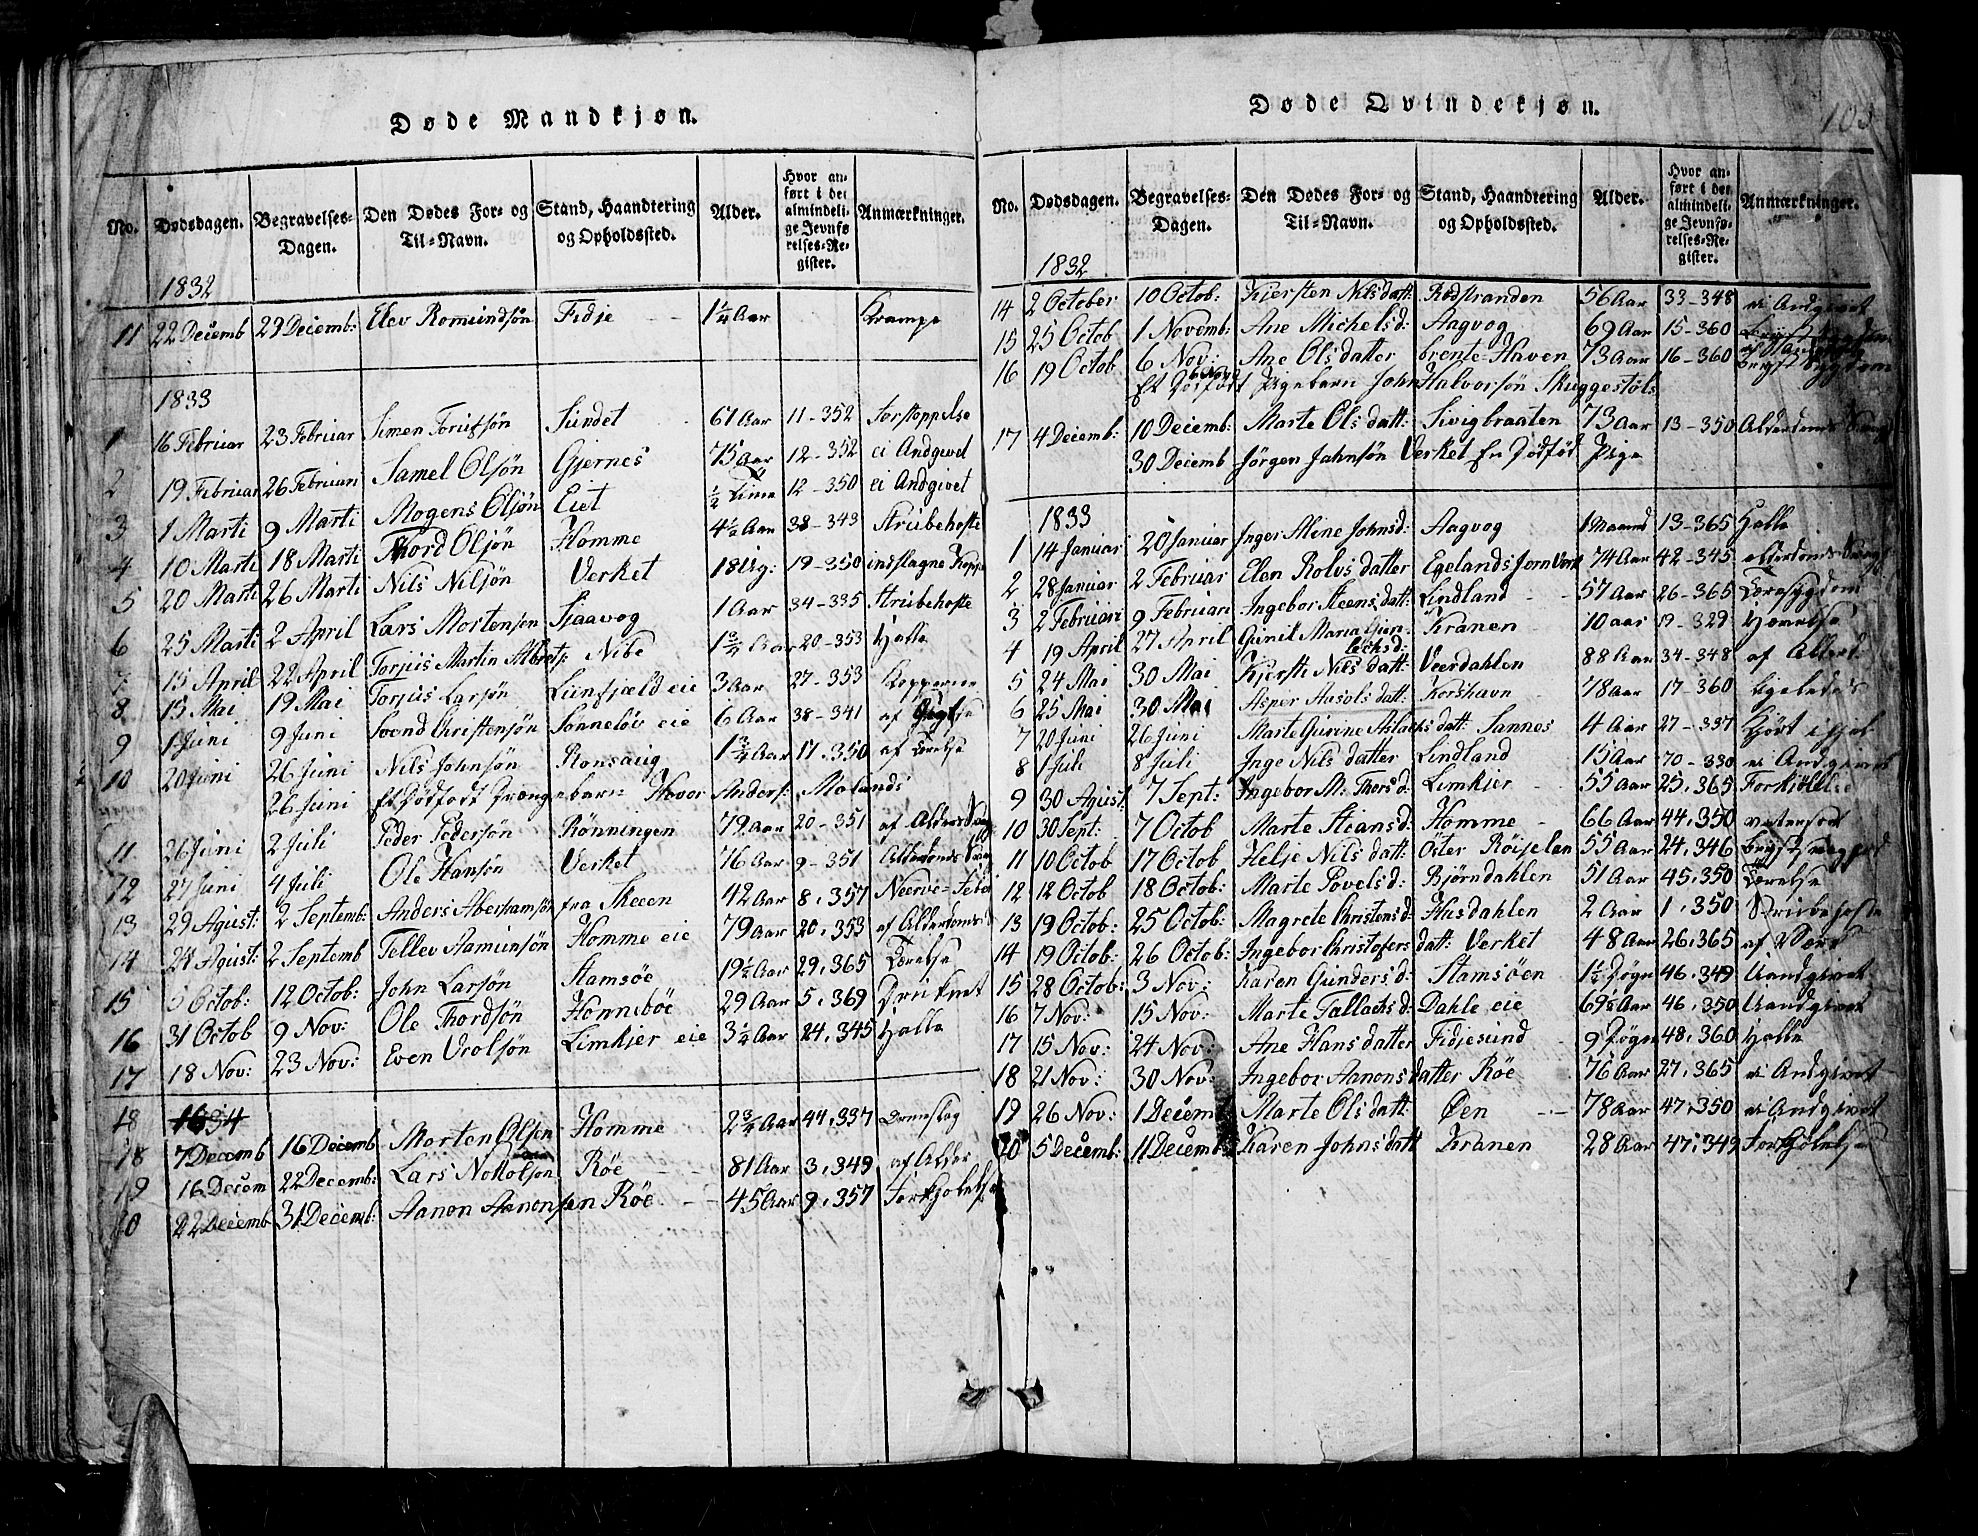 Døde Mandkjøn.
No. Dødsdagen. Begravelses-Dagen. Den Dødes For- og Til-Navn. Stand, Haandtering og Opholdssted. Alder. Hvor anført i det almindelige Jevnførelses-Register. Anmærkninger.
1832
11 22 Decemb 29 Decemb: Elev Romundsøn Fidje 1 1/4 Aar Krampe
1833
1 16 Februar 23 Februar Simen Torufsøn Sundet 61 Aar 11-352 Forstoppelse
2 19 Februar 26 Februari Samel Olsøn Gjernes 75 Aar 12-352 ei Andgivet
3 1 Marti 9 Marti Mogens Olsøn Eiet 1/2 Time 12-350 ei Andgivet
4 10 Marti 18 Marti Thord Olsøn Homme 4 1/2 Aar 38-343 Strubehoste
5 20 Marti 26 Marti Nils Nilsøn Verket 18 Ug: 19-350 indslagne Kopper
6 25 Marti 2 April Lars Mortensøn Sjaavog 1 Aar 34-335 Strubehoste
7 15 April 22 April Torjus Martin Albretj: Nibe 1 3/4 Aar 20-353 Halle
8 13 Mai 19 Mai Torjus Larsøn Lunfjæld eie 3 Aar 27-353 Kopperne
9 1 Juni 9 Juni Svend Christensøn Sonneløv eie 6 Aar 38-341 af
10 20 Juni 26 Juni Nils Johnsøn Ronsaug 1 3/4 Aar 17.350 af Tærelse
26 Juni Et Dødfødt Drængebarn Hover Anders: Molunds
11 26 Juni 2 Juli Peder Pedersøn Rønningen 79 Aar 20-351 af Alders Svag
12 27 Juni 4 Juli Ole Hansøn Verket 76 Aar 9-351 Alderdoms Svag
13 29 Agust: 2 Septemb: Anders Aberhamsøn fra Skeeen 42 Aar 8.357 Neerve=Feber
14 24 Agust: 2 Septemb Tellev Aamunsøn Homme eie 79 Aar 20.353 af Alderdoms
15 5 Octob: 12 Octob: John Larsøn Stamsøe 19 1/2 Aar 29.365 Tærelse
16 31 Octob 9 Nov: Ole Thordsøn Honnebøe 29 Aar 5.369 Druknet
17 18 Nov: 23 Nov: Even Vrolsøn Limkjer eie 3 1/4 Aar 24.345 Halle
18 1834
18 7 Decemb 16 Decemb Morten Olsen Homme 2 3/4 Aar 44.337
19 16 Decem 22 Decemb: Lars Nokolsøn Røe 81 Aar 3.349 af Alder
20 22 Decemb 31 Decemb: Aanon Aanonsen Røe 45 Aar 9.357 Forkjølelse
Døde Qvindekjøn.
103
No. Dødsdagen. Begravelses-Dagen. Den Dødes For- og Til-Navn. Stand, Haandtering og Opholdssted. Alder. Hvor anført i det almindelige Jevnførelses-Register. Anmærkninger.
1832
14 2 October 10 Octob: Kjersten Nilsdatt: Rødstranden 56 Aar 33-348 ei Andgivet
15 25 Octob 1 Novemb: Ane Michelsd: Aagvog 69 Aar 15-360
16 19 Octob 6 Nov: Ane Olsdatter brente-Haven 73 Aar 16-360 brystsygdom
6 Nov Et Dødfødt Pigebarn John Halvorsøn Skuggestøls
17 4 Decemb: 10 Decemb: Marte Olsdatt: Sivigbraaten 73 Aar 13-350 Alderdoms Svagh
30 Decemb Jørgen Jahnsøn Verket En Dødfød Pige
1833
1 14 Januar 20 Januar Inger Aline Johnsd: Aagvog 1 Maaned 13-365 Halle
2 28 Januar 2 Februar Elen Rolvsdatter Egelands Jernverk 74 Aar 42-345 Alderdoms Svagh
3 2 Februari 9 Februari Ingebor Steensdatt: Lindland 57 Aar 26-365 Tæresygdom
4 19 April 27 April Gunil Maria Gunlechsd: Kranen 10 aar 19-329
5 24 Mai 30 Mai Kjersti Nilsdatt: Veerdahlen 88 Aar 34-348 af Alderd
6 25 Mai 30 Mai Asper Aasolsdatt: Korshavn 78 Aar 17-360 ligeledes
7 20 Juni 26 Juni Marte Gurine Aslachsdatt: Sannes 4 Aar 27-337 Kjørt ihjel
8 1 Juli 8 Juli Inge Nilsdatter Lindland 15 Aar 70-330 ei Andgivet
9 30 Agust 7 Sept: Ingebor M: Thorsd: Limkjer 55 Aar 25.365 Forkjølelse
10 30 Sept: 7 Octob Marte Steansd: Homme 66 Aar 44.350 vatersot
11 10 Octob 17 Octob Helje Nilsdatt: Øster Røiselen 55 Aar 24.346
12 12 Octob 18 Octob: Marte Povelsd: Bjørndahlen 51 Aar 45.350 Tærelse
13 19 Octob: 25 Octob: Magrete Christensd: Husdahlen 2 Aar 1.350 Strubehoste
14 19 Octob: 26 Octob: Ingebor Christofersdatt: Verket 48 Aar 26.365 af
15 28 Octob: 3 Nov: Karen Gundersd: Stamsøen 1 1/2 Døgn 46.349 Uandgivet
16 7 Nov: 15 Nov: Marte Tallachsd: Dahle eie 69 1/2 Aar 46.350 Uandgivet
17 15 Nov: 24 Nov: Ane Hansdatter Fidjesund 9 Døgn 48.360 Halle
18 21 Nov: 30 Nov: Ingebor Aanonsdatter Røe 76 Aar 27.365 ei Andgivet
19 26 Nov: 1 Decemb Marte Olsdatt: Øen 78 Aar 47.350 ei Andgivet
20 5 Decemb: 11 Decemb: Karen Johnsdatt Kranen 28 Aar 47.349 Forkjølelse